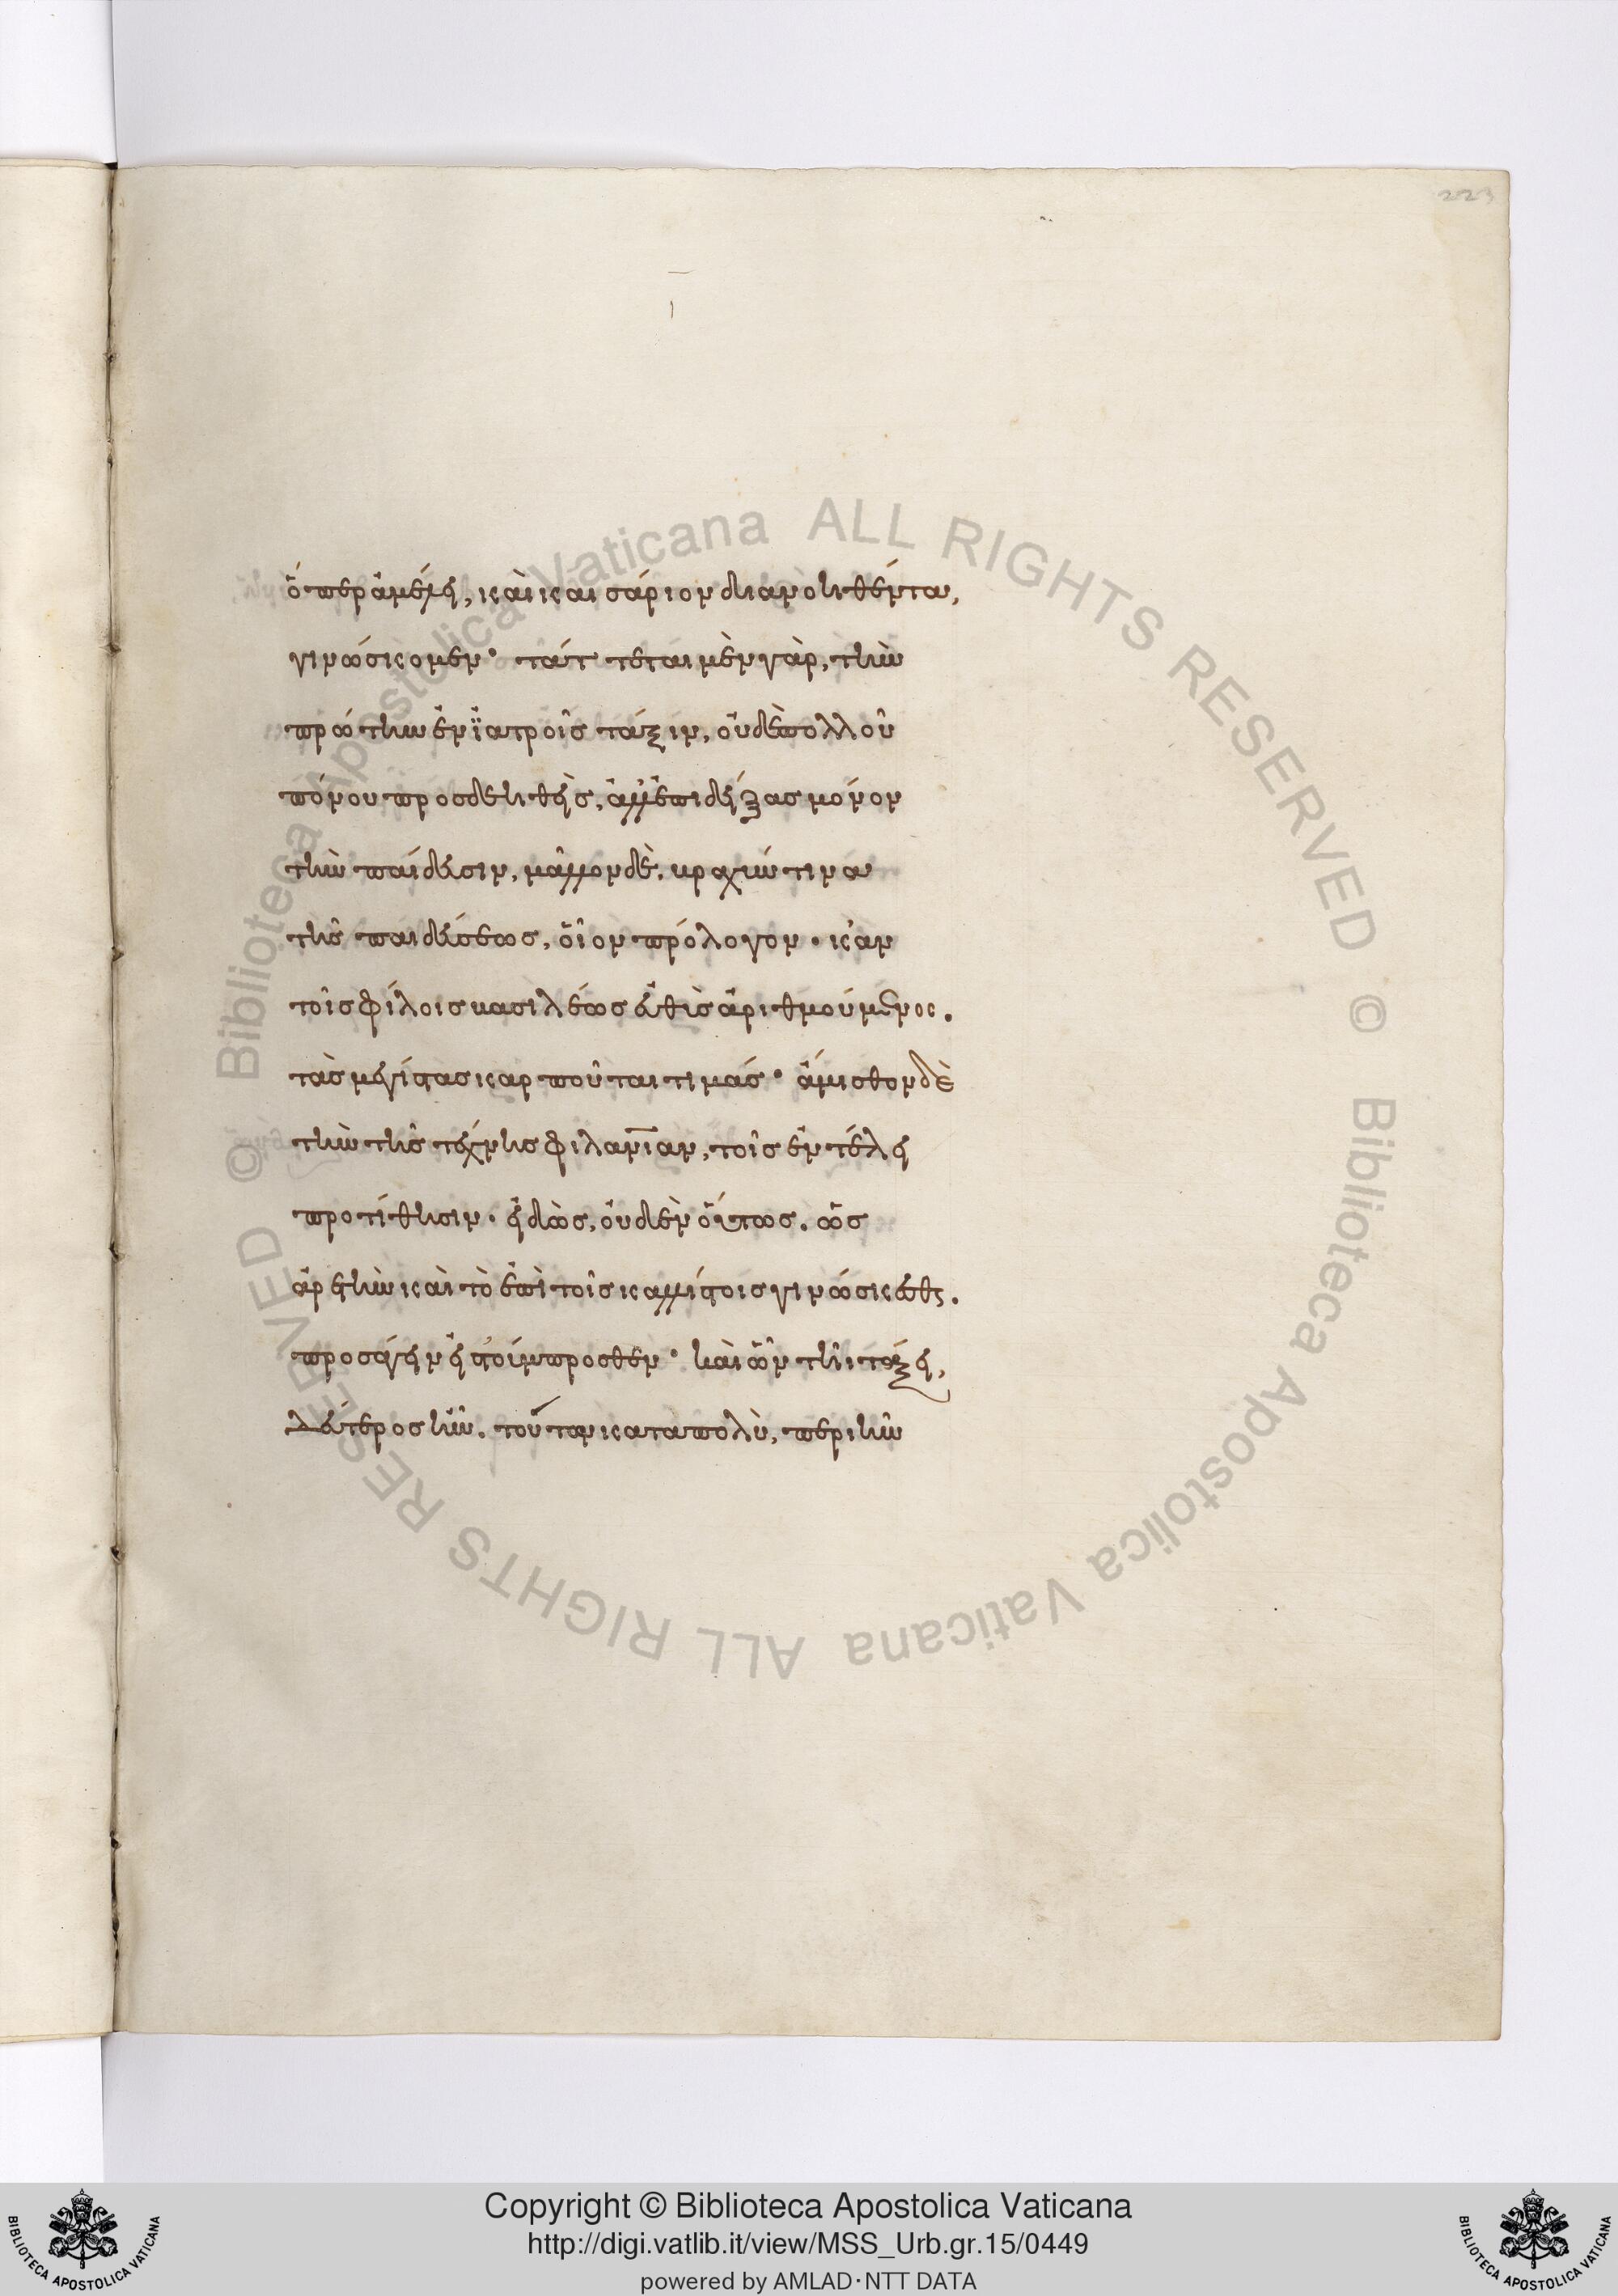 223
ὅπερ ἀμέλει, καὶ καισάριον διανοηθέντα,
γινώσκομεν· τάττεται μὲν γὰρ, τὴν
πρώτην ἐν ἰατροῖς τάξιν, οὐδὲ πολλοῦ
πόνου προσδεηθεὶς, ἀλλ' ἐπιδείξας μόνον
τὴν παίδευσιν, μᾶλλον δὲ, βραχύν τινα
τῆς παιδεύσεως, οἷον πρόλογον· κἀν
τοῖς φίλοις βασιλέως εὐθὺς ἀριθμούμενος,
τὰς μεγίστας καρποῦται τιμάς· ἄμισθον δὲ
τὴν τῆς τέχνης φιλανίαν, τοῖς ἐν τέλει
προτίθησιν· εἰδὼς, οὐδὲν οὕτως, ὡς
ἀρετὴν καὶ τὸ ἐπὶ τοῖς καλλίστοις γινώσκεσθαι,
προσάγειν εἰς τοὔμπροσθεν· καὶ ὧν τῆι τάξει,
δεύτερος ἦν, τούτων καταπολὺ, περιῆν
Biblioteca Apostolica Vaticana ALL RIGHTS RESERVED ©
Biblioteca Apostolica Vaticana ALL RIGHTS RESERVED ©
Copyright © Biblioteca Apostolica Vaticana
http://digi.vatlib.it/view/MSS_Urb.gr.15/0449
powered by AMLAD·NTT DATA
BIBLIOTECA APOSTOLICA VATICANA
BIBLIOTECA APOSTOLICA VATICANA